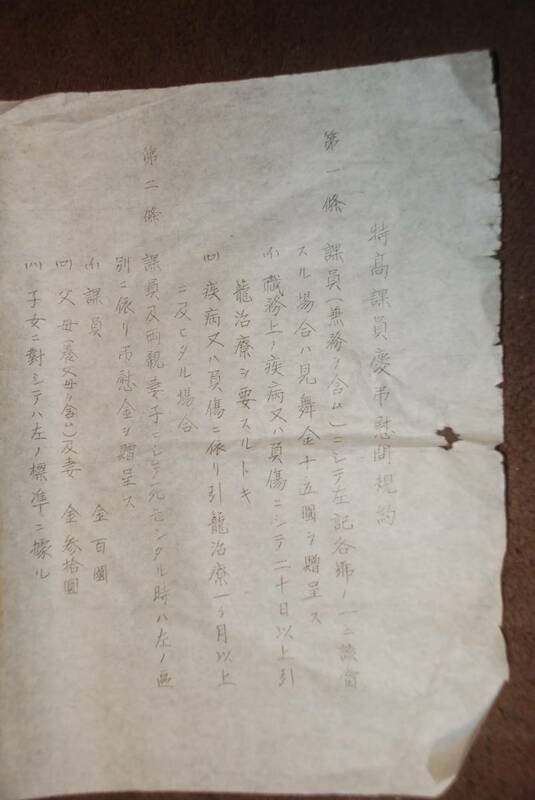 特高課員慶弔慰問規約
第一條 課員(兼務ヲ含ム)ニシテ左記各號ノ一ニ該當
スル場合ハ見舞金十五圓ヲ贈呈ス
(イ)職務上ノ疾病又ハ負傷ニシテ二十日以上引
籠治療ヲ要スルトキ
(ロ)疾病又ハ負傷ニ依リ引籠治療一ヶ月以上
ニ及ヒタル場合
第二條 課員及両親妻子ニシテ死亡シタル時ハ左ノ區
別ニ依リ弔慰金ヲ贈呈ス
(イ)課員 金百圓
(ロ)父母(養父母ヲ含ム)及妻 金参拾圓
(ハ)子女ニ對シテハ左ノ標準ニ據ル